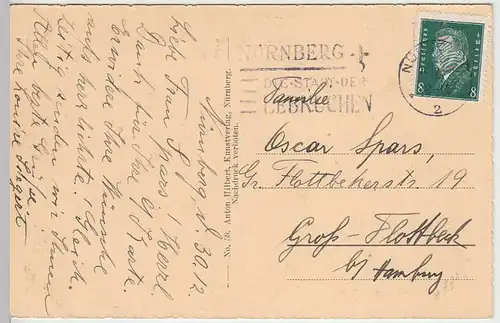 Nürnberg, d. 30.12.
Liebe Frau Spars! Herzl.
Dank für Ihre Karte.
erwidere Ihre Wünsche
auch herzlichst. Gleich-
zeitig senden wir Ihnen
Allen beste Grüße
Ihre Louise
No. 38. Anton Hilbert, Kunstverlag, Nürnberg.
Nachdruck verboten.
NÜRNBERG
DIE·STADT·DER
LEBKUCHEN
NÜRNBERG
2
Deutsches Reich
8 8
Familie
Oscar Spars,
Gr. Flottbekerstr. 19
Groß-Flottbek
bei Hamburg